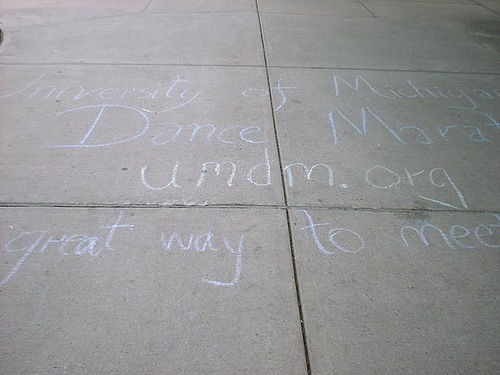 University of Michiga
Dance Mara
umdm.org
great way to mee